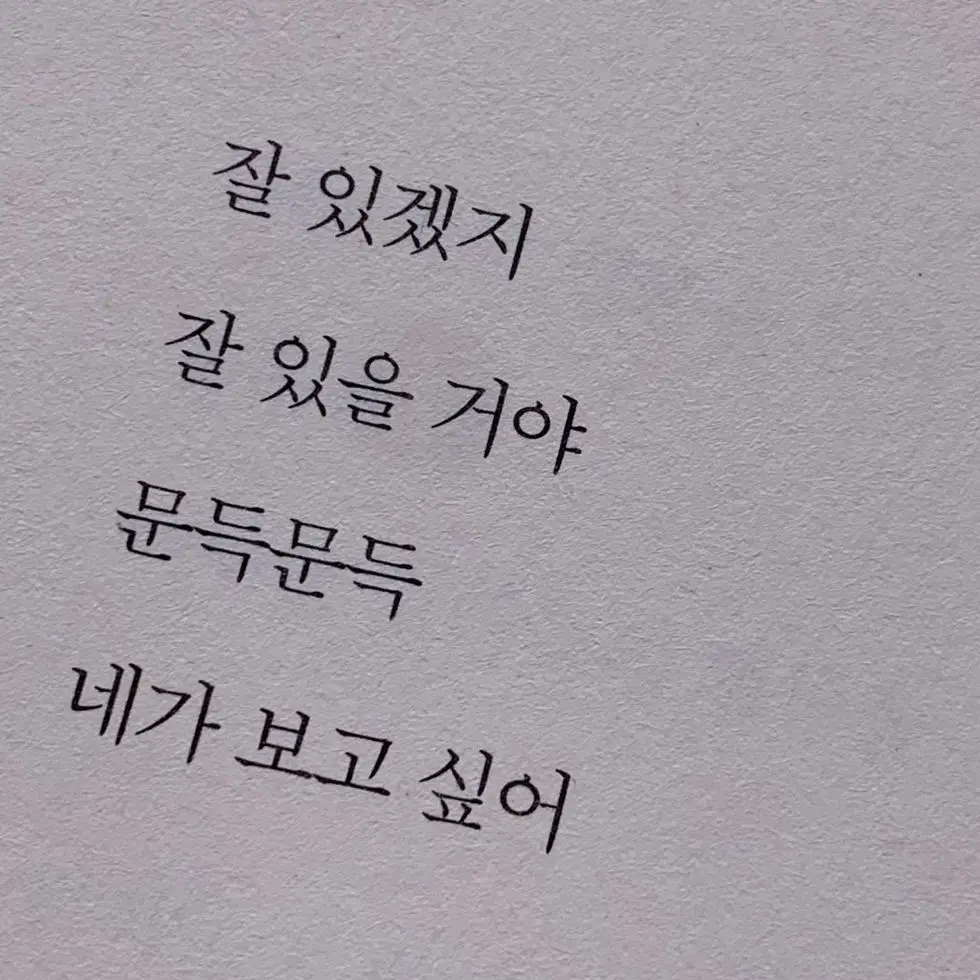 잘 있겠지
잘 있을 거야
문득문득
네가 보고 싶어